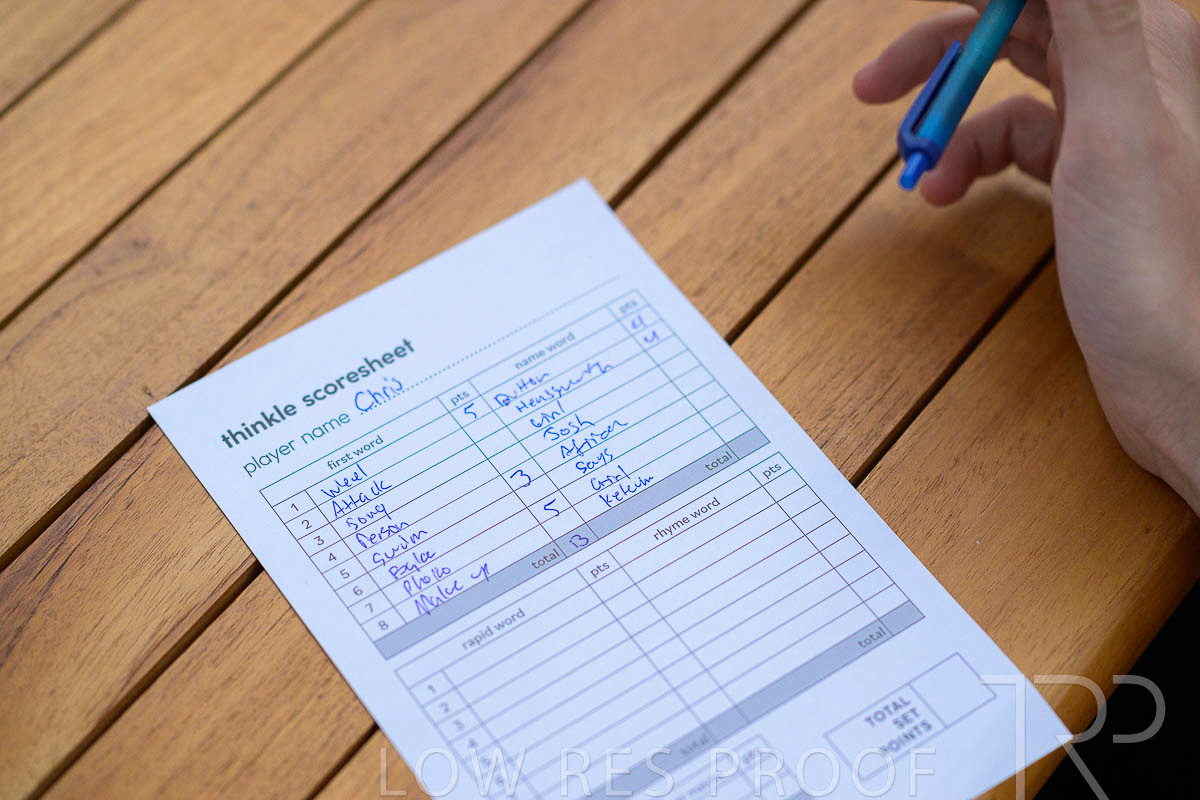 thinkle scoresheet
player name Chris
first word pts name word pts
1 Weel 5 Button 4
2 Attack Hemsworth 4
3 Song Girl
4 Person Josh
5 3
6 Says
7 Photo 5 Girl
8 Make up Ketchum
total 13 total
rapid word pts rhyme word pts
1
2
3
4
total total
TOTAL
SET
POINTS
TRP
LOW RES PROOF